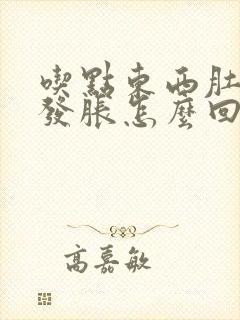 喫點東西肚
發脹怎麼回
高嘉敏